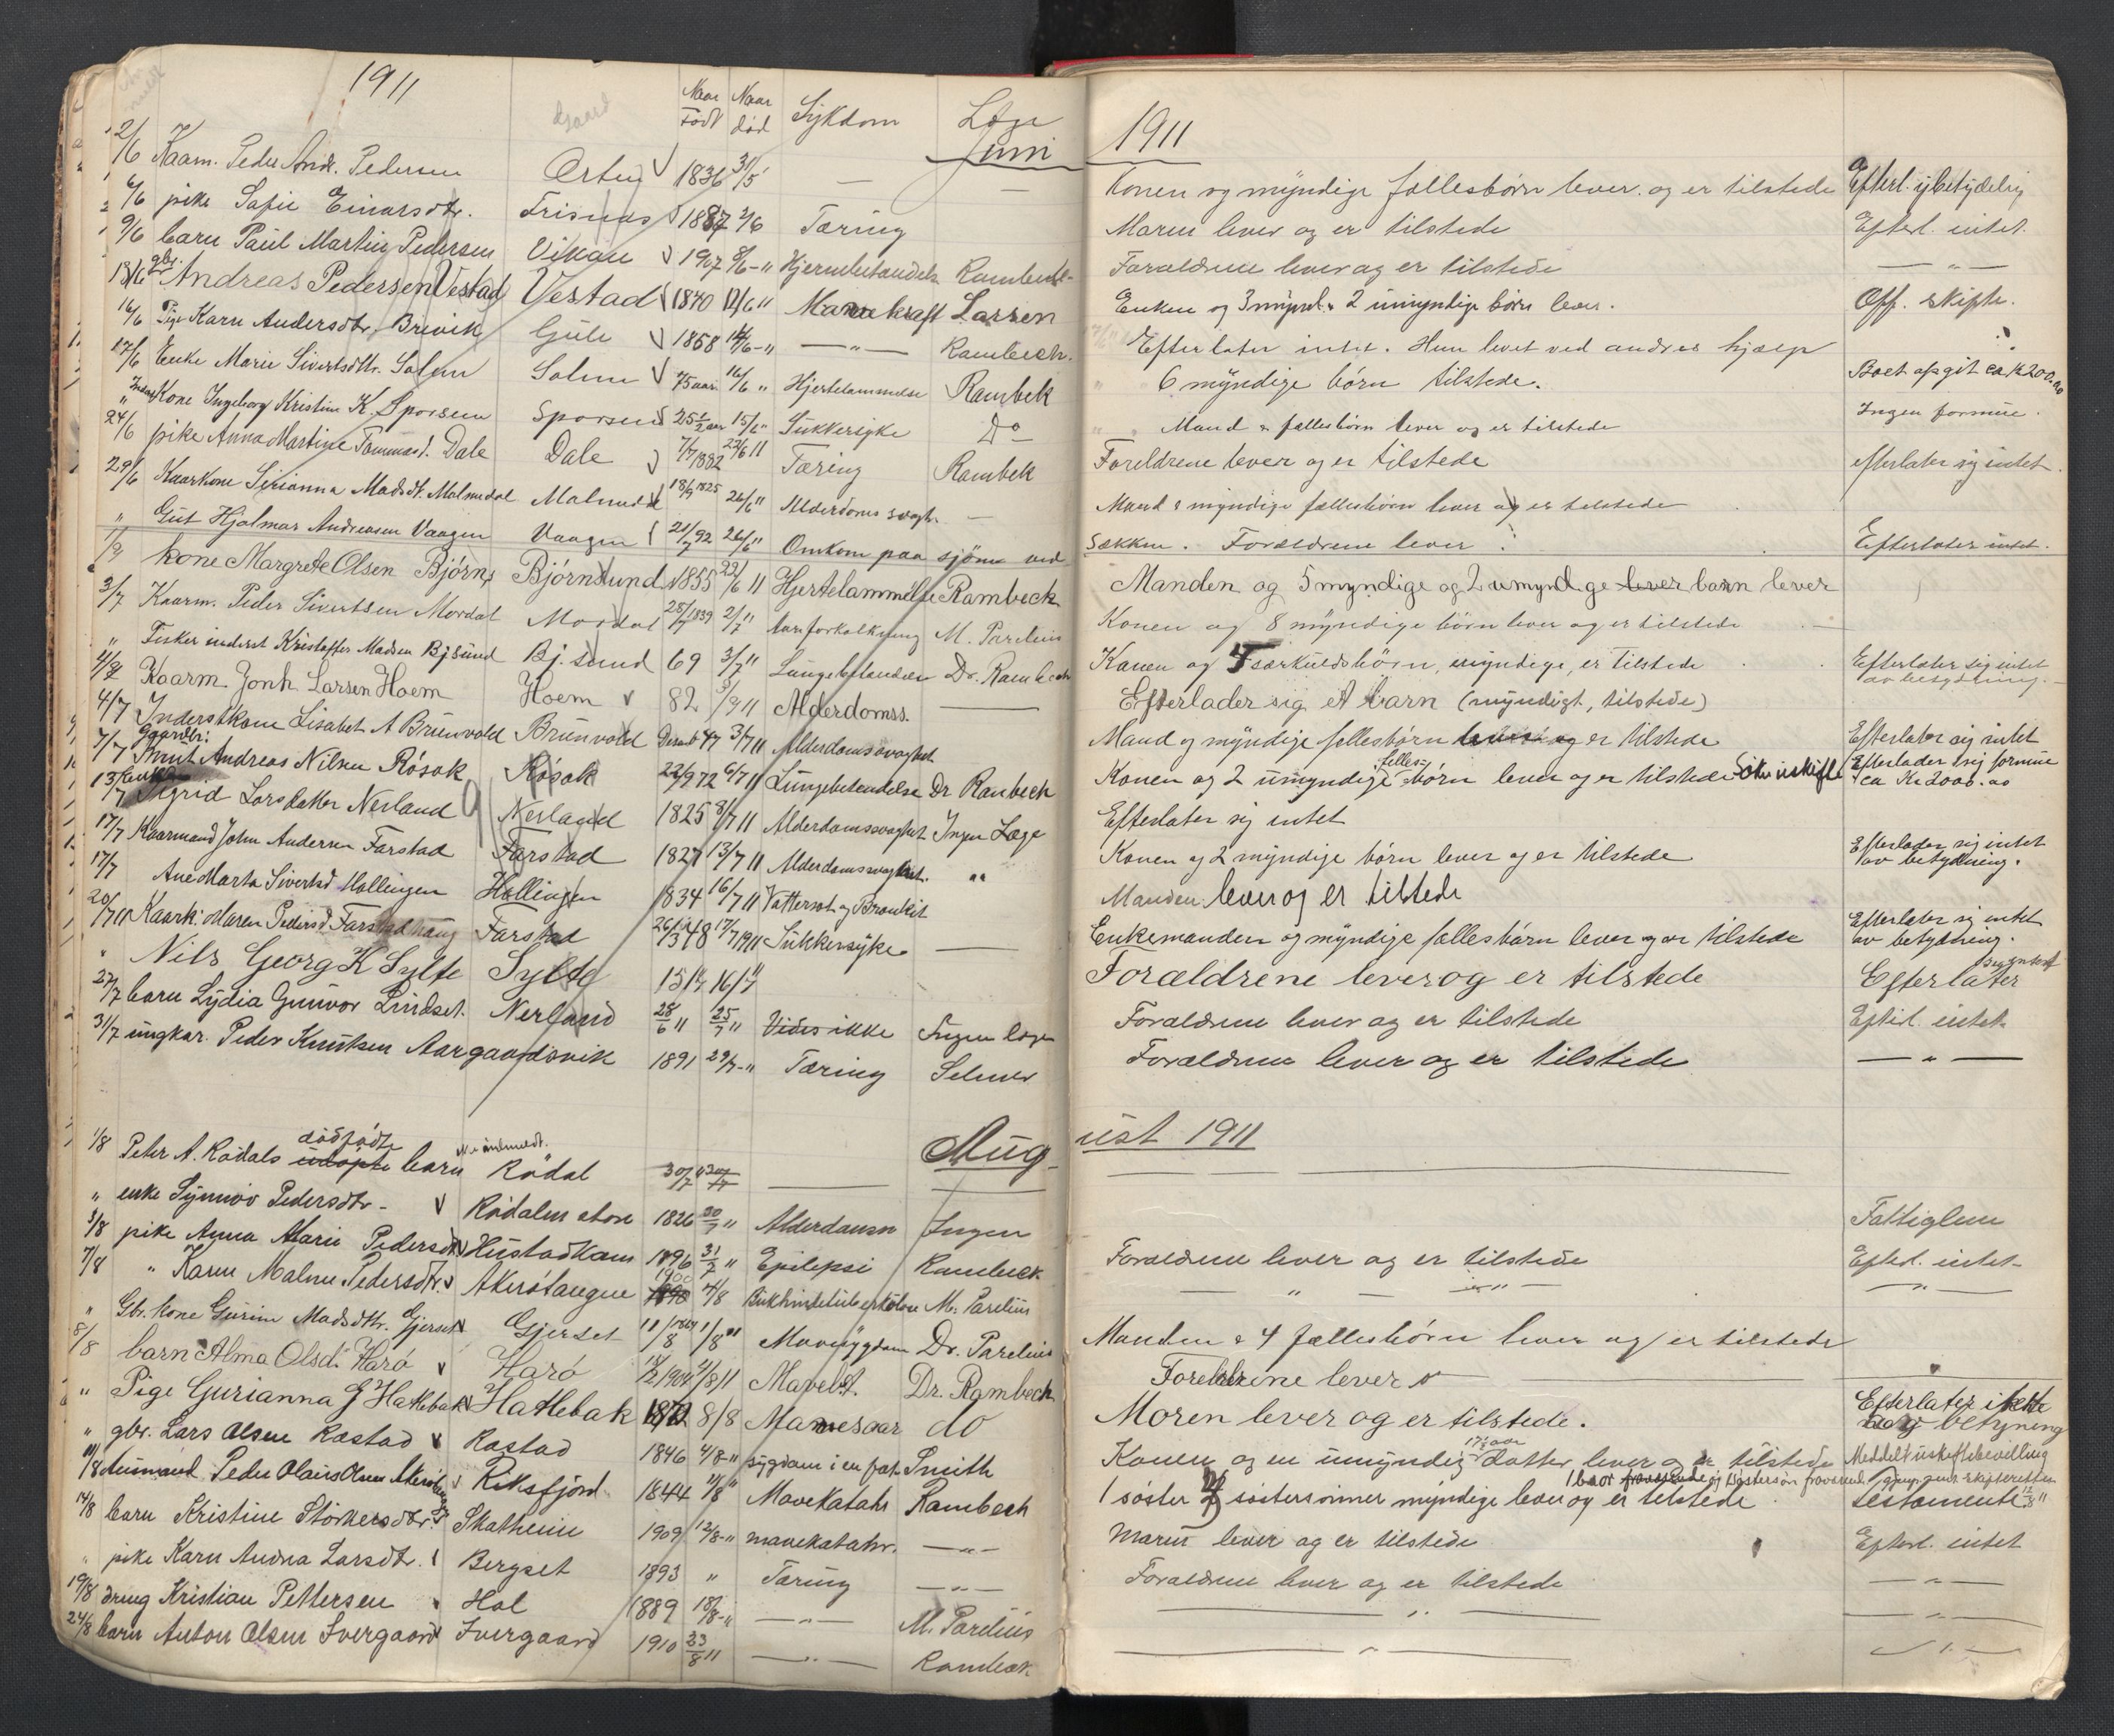 1911
Naar Født Naar død Sykdom Læge
Gaard
Juni 1911
2/6 Kaarm. Peder Andr. Pedersen Orten 1836 31/5 — — Konen og myndige fællesbørn lever og er tilstede Efterl. ubetydelig
6/6 pike Sofie Einarsdtr. Frisnes 1887 2/6 Tæring Moren lever og er tilstede Efterl. intet.
9/6 barn Paul Martin Pedersen Vikan 1907 8/6 -" Hjernebetændelse Rambech Forældrene lever og er tilstede — " —
13/6 gbr. Andreas Pedersen Vestad Vestad 1840 12/6 " Mavekræft Larsen Enken og 3 mynd. & 2 umyndige børn lever. Off. skifte.
16/6 Pige Karn Andersdtr. Brevik Gule 1868 14/6 -" — " — Rambech. Efterlater intet. Hun levet ved andres hjælp
17/6 Enke Marie Sivertsdtr. Solem Solem 75 aar 16/6 " Hjertelammelse Rambek 6 myndige børn tilstede. Boet opgit ca. kr 200.00
" Kone Ingeborg Kristine K. Sporsem Sporsem 25 1/2 aar 15/6 " Sukkersyke Do Mand & fællesbørn lever og er tilstede Ingen formue.
24/6 pike Anna Martine Tommasd. Dale Dale 7/7 1882 22/6 11 Tæring Rambek Foreldrene lever og er tilstede efterlater sig intet.
29/6 Kaarkone Sirianna Madsdt. Malmedal Malmedal 18/9 1825 26/6 " Alderdomssvagh. — Mand & myndige fællesbørn lever og er tilstede
" Gut Hjalmar Andreasen Vaagen Vaagen 21/7 92 26/6 " Omkom paa sjøen ved Sækken. Forældrene lever. Efterlater intet.
1/7 kone Margrete Olsen Bjørns Bjørnsund 1855 22/6 11 Hjertelammelse Rambeck Manden og 5 myndige og 2 umyndige lever barn lever
3/7 Kaarm. Peder Sivertsen Mordal Mordal 28/7 1839 2/7 " Aareforkalkning M. Parelius Konen og 8 myndige børn lever og er tilstede
" Fisker inderst Kristoffer Madsen Bj.sund Bj.sund 69 3/7 " Lungebetændelse Dr. Rambech Konen og 4 særkuldsbørn, myndige, er tilstede Efterlater sig intet av betydning.
4/7 Kaarm. Jonh. Larsen Hoem Hoem 82 11 Alderdomss. — Efterlader sig et barn (myndigt, tilstede)
4/7 Inderstkone Lisabet A Brunvold Brunvold 47 3/7 11 Alderdomssvaghet Mand og myndige fællesbørn lever og er tilstede Efterlater sig intet
7/7 Gaardbr. Knut Andreas Nilsen Rösok Rösok 22/9 72 6/7 11 Lungebetendelse Dr Ranbech Konen og 2 umyndige felles- børn lever og er tilstede Efterlader sig formue ca Kr 2000.00
13/7 Sigrid Larsdatter Nerland Nerland 1825 8/7 11 Alderdomssvaghet Ingen Læge Efterlater sig intet
17/7 Kaarmand John Andersen Farstad Farstad 1827 13/7 11 Alderdomssvaghet. " Konen og 2 myndige børn lever og er tilstede Efterlader sig intet av betydning.
17/7 Ane Marta Sivertsd Hollingen Hollingen 1834 16/7 11 Vattersot og Bronkit Manden lever og er tilstede
20/7 11 Kaark. Maren Pedersd Farstadhaug Farstad 48 17/7 1911 Sukkersyke — Enkemanden og myndige fælles børn lever og er tilstede Efterlater sig intet av betydning.
" Nils Georg K Sylte Sylte 16/7 Forældrene lever og er tilstede Efterlater sig intet
27/7 barn Lydia Gunvor Lindset. Nerland 28/6 " 25/7 " Vides ikke Ingen læge Forældrene lever og er tilstede Efterl. intet
31/7 ungkar. Peder Knutsen Aargaardsvik 1891 29/7 -" Tæring Selmer Forældrene lever og er tilstede — " —
August 1911
1/8 Peter A. Rødals udøpte dødfødte barn Rødal 30/7 " — —
" enke Synnøv Pedersdtr - Rødalen store 1826 30/7 " Alderdomsv Ingen Fattiglem
3/8 pike Anna Marie Pedersdtr Hustadkam 1896 31/7 " Epilepsi Rambeck Forældrene lever og er tilstede Efterl. intet
7/8 " Karen Malene Pedersdtr. Akerøtangen 1900 4/8 Bukhindetuberkulose M. Parelius — " — — " —
" Gbr. kone Gurine Madsdtr. Gjerset Gjerset 1/8 " Mavesygdom Dr. Parelius Manden & 4 fællesbørn lever og er tilstede
8/8 barn Alma Olsdt. Harö Harö 1904 4/8 11 Mavebet. Dr. Rambech Foreldrene lever
" Pige Gurianna G Hatlebak Hatlebak 1870 8/8 Mavesaar do Moren lever og er tilstede. Efterlater ikke nog betyning
" gbr. Lars Olsen Rastad Rastad 1846 4/8 -" sygdom i en fot Smith Konen og en umyndig 17 1/2 aar datter lever og er tilstede Meddelt uskiftebevilling
11/8 Peder Olaus Olsen Riksfjord 1844 11/8 " Mavekatahr Rambech 1 søster søstersønner myndige lever og er tilstede testamente
14/8 barn Kristine Størkersdtr. Skatheim 1909 12/8 -" mavekatahr. — " — Moren lever og er tilstede Efterl. intet
" pike Karn Andrea Larsdtr. Bergset 1893 " Tæring — " — Forældrene lever og er tilstede — " —
19/8 dreng Kristian Pettersen Hol 1889 18/8 -" — " — M. Parelius — " — — " —
24/8 barn Anton Olsen Ivergaard Ivergaard 1910 23/8 11 — " — Rambæk — " — — " —